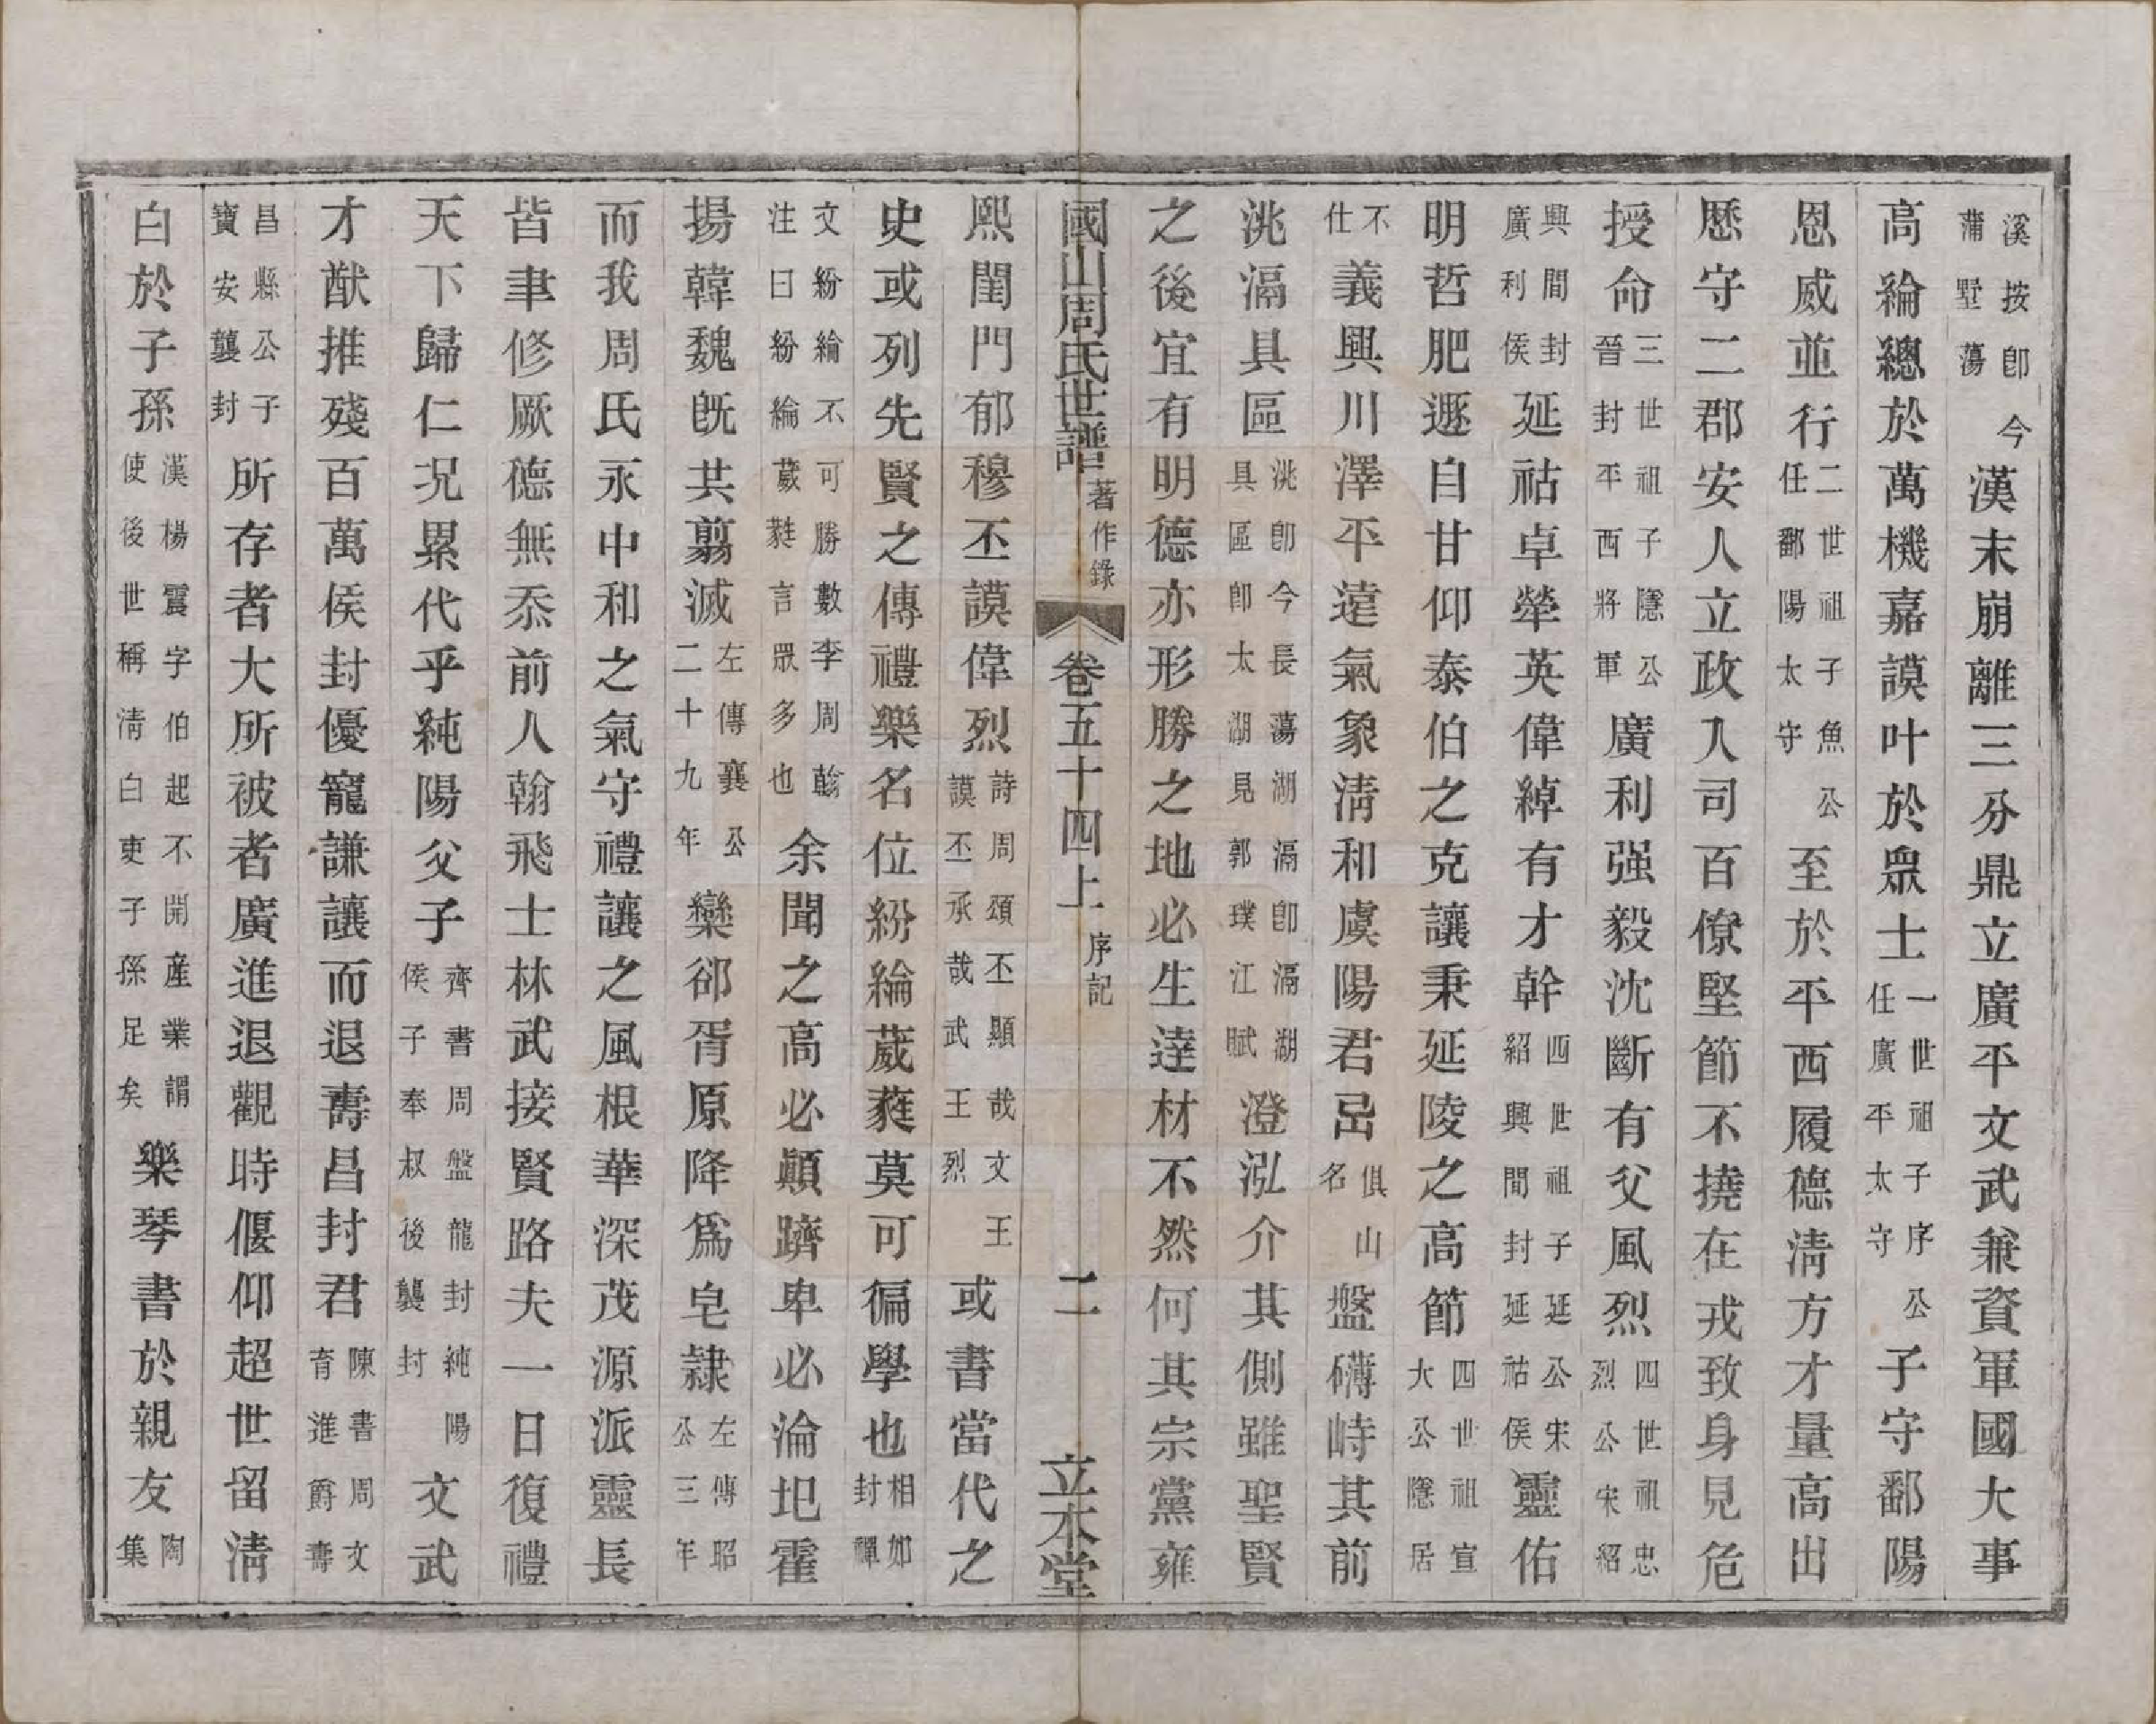 溪按卽今蒲墅蕩漢末崩離三分鼎立廣平文武兼資軍國大事
高綸總於萬機嘉謨叶於眾士一世祖子序公任廣平太守子守鄱陽
恩威並行二世祖子魚公任鄱陽太守至於平西履德清方才量高出
歷守二郡安人立政入司百僚堅節不撓在戎致身見危
授命三世祖子隱公晉封平西將軍廣利强毅沈斷有父風烈四世祖忠烈公宋紹
興間封廣利侯延祜卓犖英偉綽有才幹四世祖子延公宋紹興間封延祜侯靈佑
明哲肥遯自甘仰泰伯之克讓秉延陵之高節四世祖宣大公隱居
不仕義興川澤平遠氣象清和虞陽君嵒俱山名盤礴峙其前
洮滆具區洮卽今長蕩湖滆卽滆湖具區卽太湖見郭璞江賦澄泓介其側雖聖賢
之後宜有明德亦形勝之地必生達材不然何其宗黨雍
國山周氏世譜 著作錄 卷五十四上 序記 二 立本堂
熙閨門郁穆丕謨偉烈詩周頌丕顯哉文王謨丕承哉武王烈或書當代之
史或列先賢之傳禮樂名位紛綸葳蕤莫可徧學也相如封禪
文紛綸不可勝數李周翰注曰紛綸葳蕤言眾多也余聞之高必顛躋卑必淪圯霍
揚韓魏旣共翦滅左傳襄公二十九年欒郤胥原降爲皂隸左傳昭公三年
而我周氏永中和之氣守禮讓之風根華深茂源派靈長
皆聿修厥德無忝前人翰飛士林武接賢路夫一日復禮
天下歸仁况累代乎純陽父子齊書周盤龍封純陽侯子奉叔後襲封文武
才猷摧殘百萬侯封優寵謙讓而退壽昌封君陳書周文育進爵壽
昌縣公子寶安襲封所存者大所被者廣進退觀時偃仰超世留清
白於子孫漢楊震字伯起不開產業謂使後世稱清白吏子孫足矣樂琴書於親友陶集